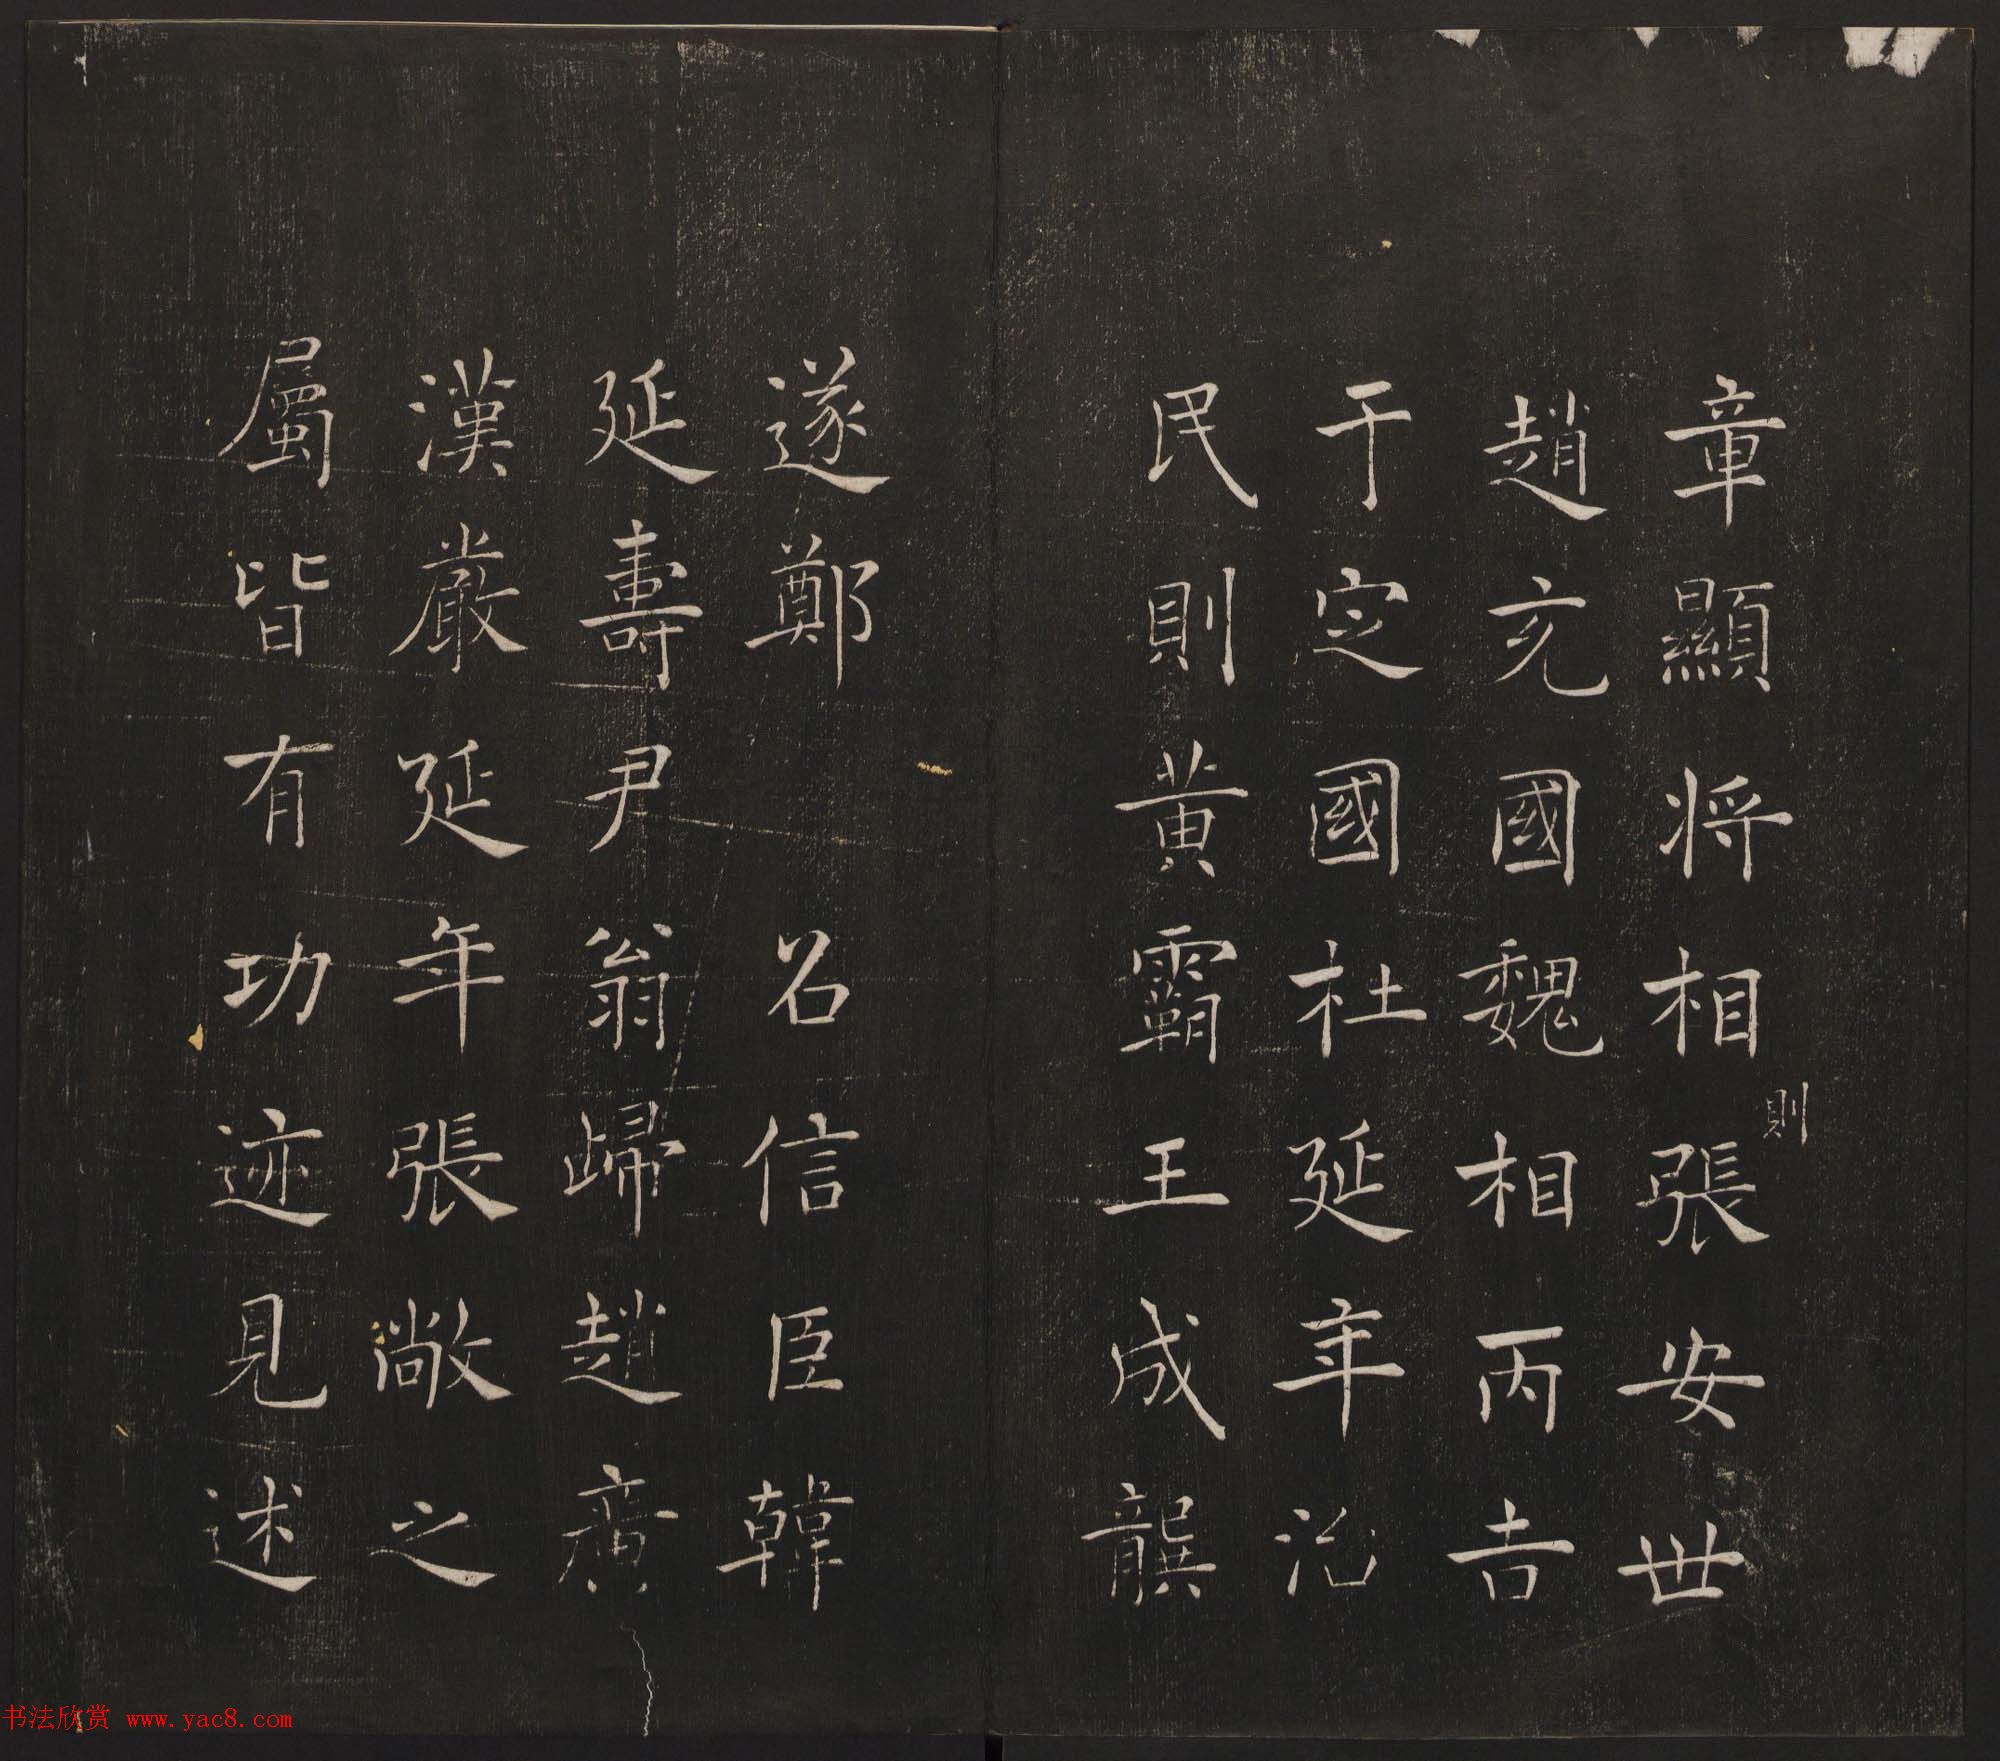 章顯將相張安世
則
趙充國魏相丙吉
于定國杜延年治
民則黄霸王成龔
遂鄭名信臣韓
延壽尹翁歸趙廣
漢嚴延年張敞之
屬皆有功迹見述
书法欣赏 www.yac8.com